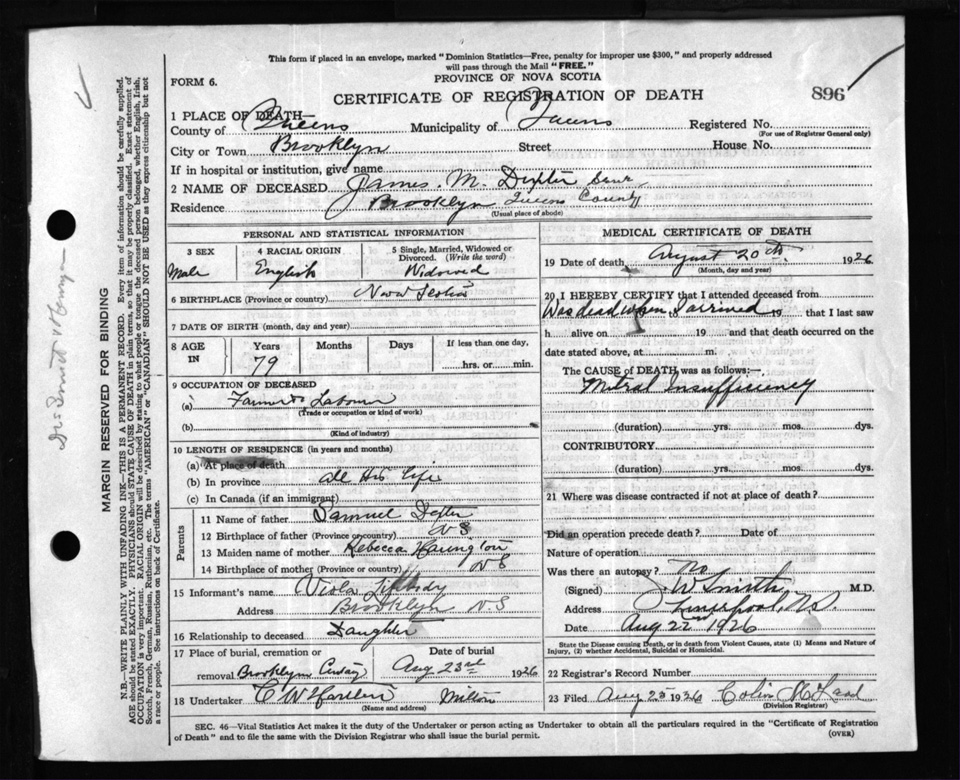 This form if placed in an envelope, marked "Dominion Statistics—Free, penalty for improper use $300," and properly addressed
will pass through the Mail "FREE."
PROVINCE OF NOVA SCOTIA
FORM 6.
CERTIFICATE OF REGISTRATION OF DEATH
896
1 PLACE OF DEATH—
County of Queens Municipality of Queens Registered No.
(For use of Registrar General only)
City or Town Brooklyn Street House No.
If in hospital or institution, give name
2 NAME OF DECEASED James. M. Dexter Senr
Residence Brooklyn Queens County
(Usual place of abode)
PERSONAL AND STATISTICAL INFORMATION
3 SEX 4 RACIAL ORIGIN 5 Single, Married, Widowed or
Divorced. (Write the word)
Male English Widowed
6 BIRTHPLACE (Province or country) Nova Scotia
7 DATE OF BIRTH (month, day and year)
8 AGE IN Years Months Days If less than one day,
79 hrs. or min.
9 OCCUPATION OF DECEASED
(a) Farmer & Labourer
(Trade or occupation or kind of work)
(b)
(Kind of industry)
10 LENGTH OF RESIDENCE (in years and months)
(a) At place of death
(b) In province all His life
(c) In Canada (if an immigrant)
Parents
11 Name of father Samuel Dexter
12 Birthplace of father (Province or country) N S
13 Maiden name of mother Rebecca Harrington
14 Birthplace of mother (Province or country) N S
15 Informant's name Viola
Address Brooklyn N.S
16 Relationship to deceased Daughter
17 Place of burial, cremation or Date of burial
removal Brooklyn Aug 23rd 1926
18 Undertaker Milton
(Name and address)
MEDICAL CERTIFICATE OF DEATH
19 Date of death August 20th 1926
(Month, day and year)
20 I HEREBY CERTIFY that I attended deceased from
Was dead when I arrived 19 that I last saw
h alive on 19 and that death occurred on the
date stated above, at m.
The CAUSE OF DEATH was as follows:—
Mitral Insufficiency
(duration) yrs. mos. dys.
CONTRIBUTORY.
(duration) yrs. mos. dys.
21 Where was disease contracted if not at place of death?
Did an operation precede death? Date of
Nature of operation
Was there an autopsy? No
(Signed) J. W Smith M.D.
Address Liverpool, N.S.
Date Aug 22nd 1926
State the Disease causing Death, or in death from Violent Causes, state (1) Means and Nature of
Injury, (2) whether Accidental, Suicidal or Homicidal.
22 Registrar's Record Number
23 Filed Aug 23 1926 Colin McLeod
(Division Registrar)
SEC. 46—Vital Statistics Act makes it the duty of the Undertaker or person acting as Undertaker to obtain all the particulars required in the "Certificate of Registration
of Death" and to file the same with the Division Registrar who shall issue the burial permit.
(OVER)
MARGIN RESERVED FOR BINDING
N.B.—WRITE PLAINLY WITH UNFADING INK—THIS IS A PERMANENT RECORD. Every item of information should be carefully supplied.
AGE should be stated EXACTLY. PHYSICIANS should STATE CAUSE OF DEATH in plain terms, so that it may be properly classified. Exact statement of
OCCUPATION is very important. RACIAL ORIGIN will be described by stating to what people or tongue the deceased person belonged, whether English, Irish,
Scotch, French, German, Russian, Ruthenian, etc. The terms "AMERICAN" or "CANADIAN" SHOULD NOT BE USED as they express citizenship but not
a race or people. See instructions on back of Certificate.